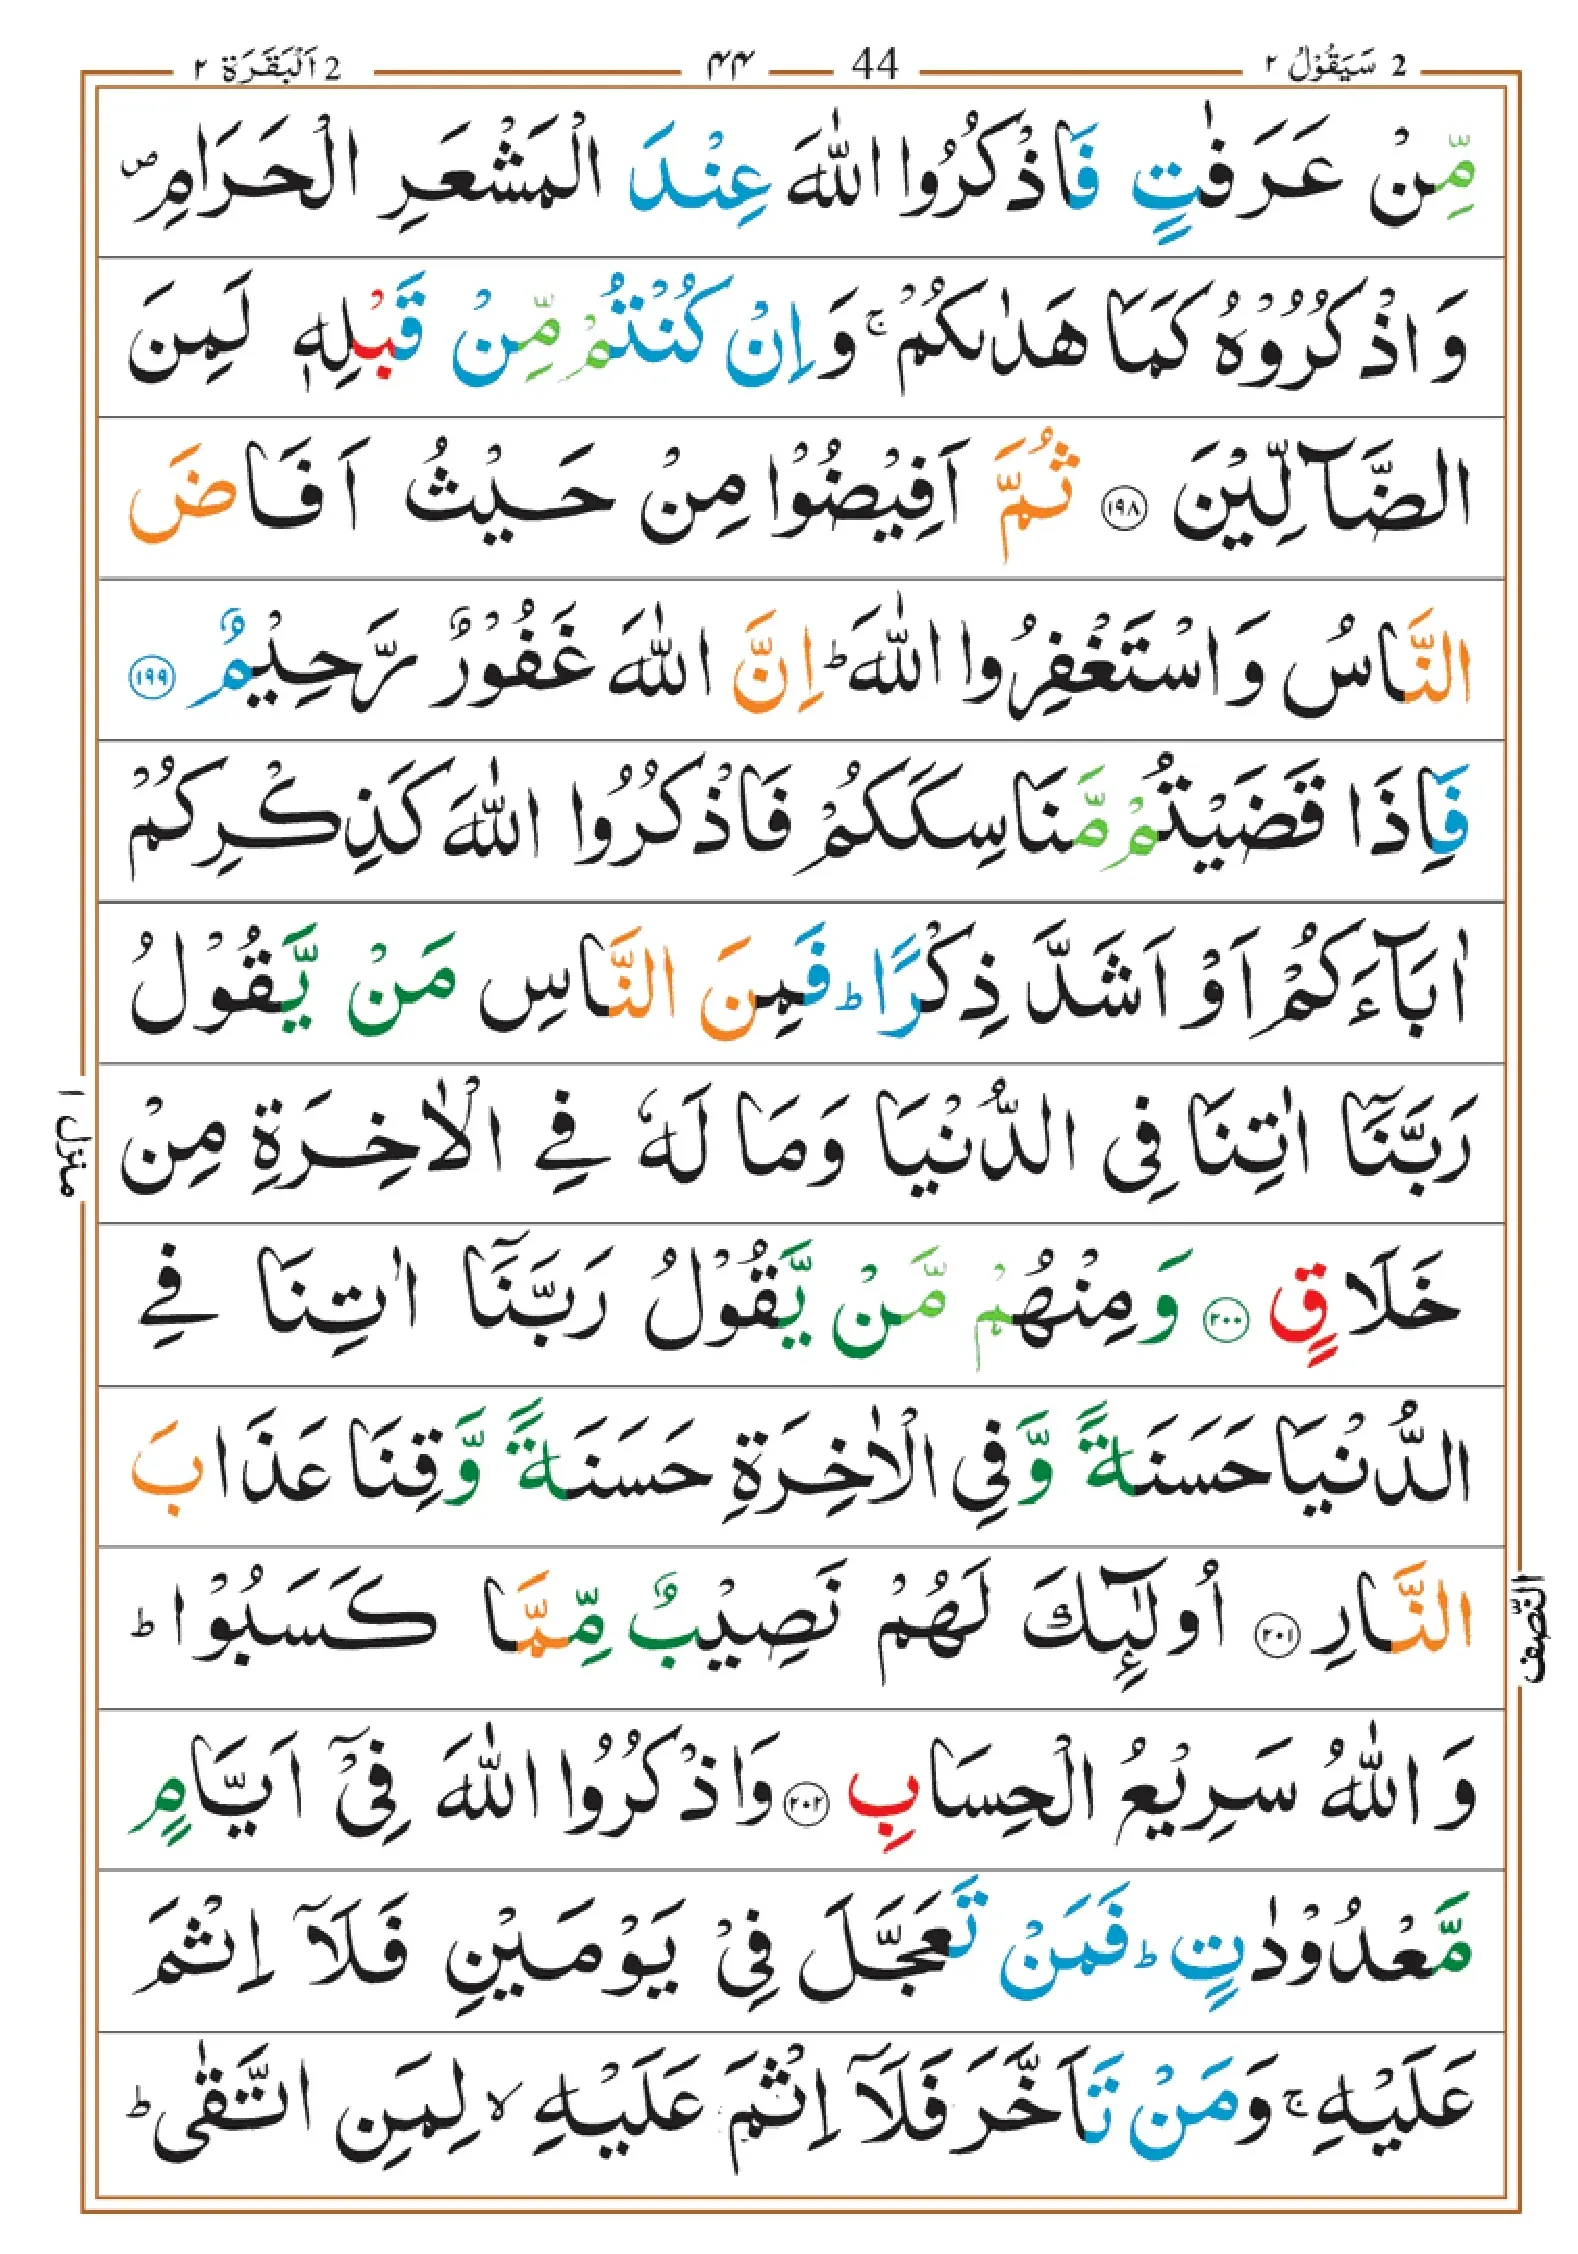 2 سَيَقُوْلُ ٢
44 ۴۴
2 اَلْبَقَرَة ٢
مِّنْ عَرَفٰتٍ فَاذْكُرُوا اللّٰهَ عِنْدَ الْمَشْعَرِ الْحَرَامِ ۪
وَاذْكُرُوْهُ كَمَا هَدٰىكُمْ ۚ وَاِنْ كُنْتُمْ مِّنْ قَبْلِهٖ لَمِنَ
الضَّآلِّيْنَ ١٩٨ ثُمَّ اَفِيْضُوْا مِنْ حَيْثُ اَفَاضَ
النَّاسُ وَاسْتَغْفِرُوا اللّٰهَ ؕ اِنَّ اللّٰهَ غَفُوْرٌ رَّحِيْمٌ ١٩٩
فَاِذَا قَضَيْتُمْ مَّنَاسِكَكُمْ فَاذْكُرُوا اللّٰهَ كَذِكْرِكُمْ
اٰبَآءَكُمْ اَوْ اَشَدَّ ذِكْرًا ؕ فَمِنَ النَّاسِ مَنْ يَّقُوْلُ
رَبَّنَآ اٰتِنَا فِى الدُّنْيَا وَمَا لَهٗ فِے الْاٰخِرَةِ مِنْ
خَلَاقٍ ٢٠٠ وَمِنْهُمْ مَّنْ يَّقُوْلُ رَبَّنَآ اٰتِنَا فِے
الدُّنْيَا حَسَنَةً وَّفِى الْاٰخِرَةِ حَسَنَةً وَّقِنَا عَذَابَ
النَّارِ ٢٠١ اُولٰٓئِكَ لَهُمْ نَصِيْبٌ مِّمَّا كَسَبُوْا ؕ
وَاللّٰهُ سَرِيْعُ الْحِسَابِ ٢٠٢ وَاذْكُرُوا اللّٰهَ فِىْٓ اَيَّامٍ
مَّعْدُوْدٰتٍ ؕ فَمَنْ تَعَجَّلَ فِىْ يَوْمَيْنِ فَلَآ اِثْمَ
عَلَيْهِ ۚ وَمَنْ تَاَخَّرَ فَلَآ اِثْمَ عَلَيْهِ ۙ لِمَنِ اتَّقٰى ؕ
منزل ١
النّصف